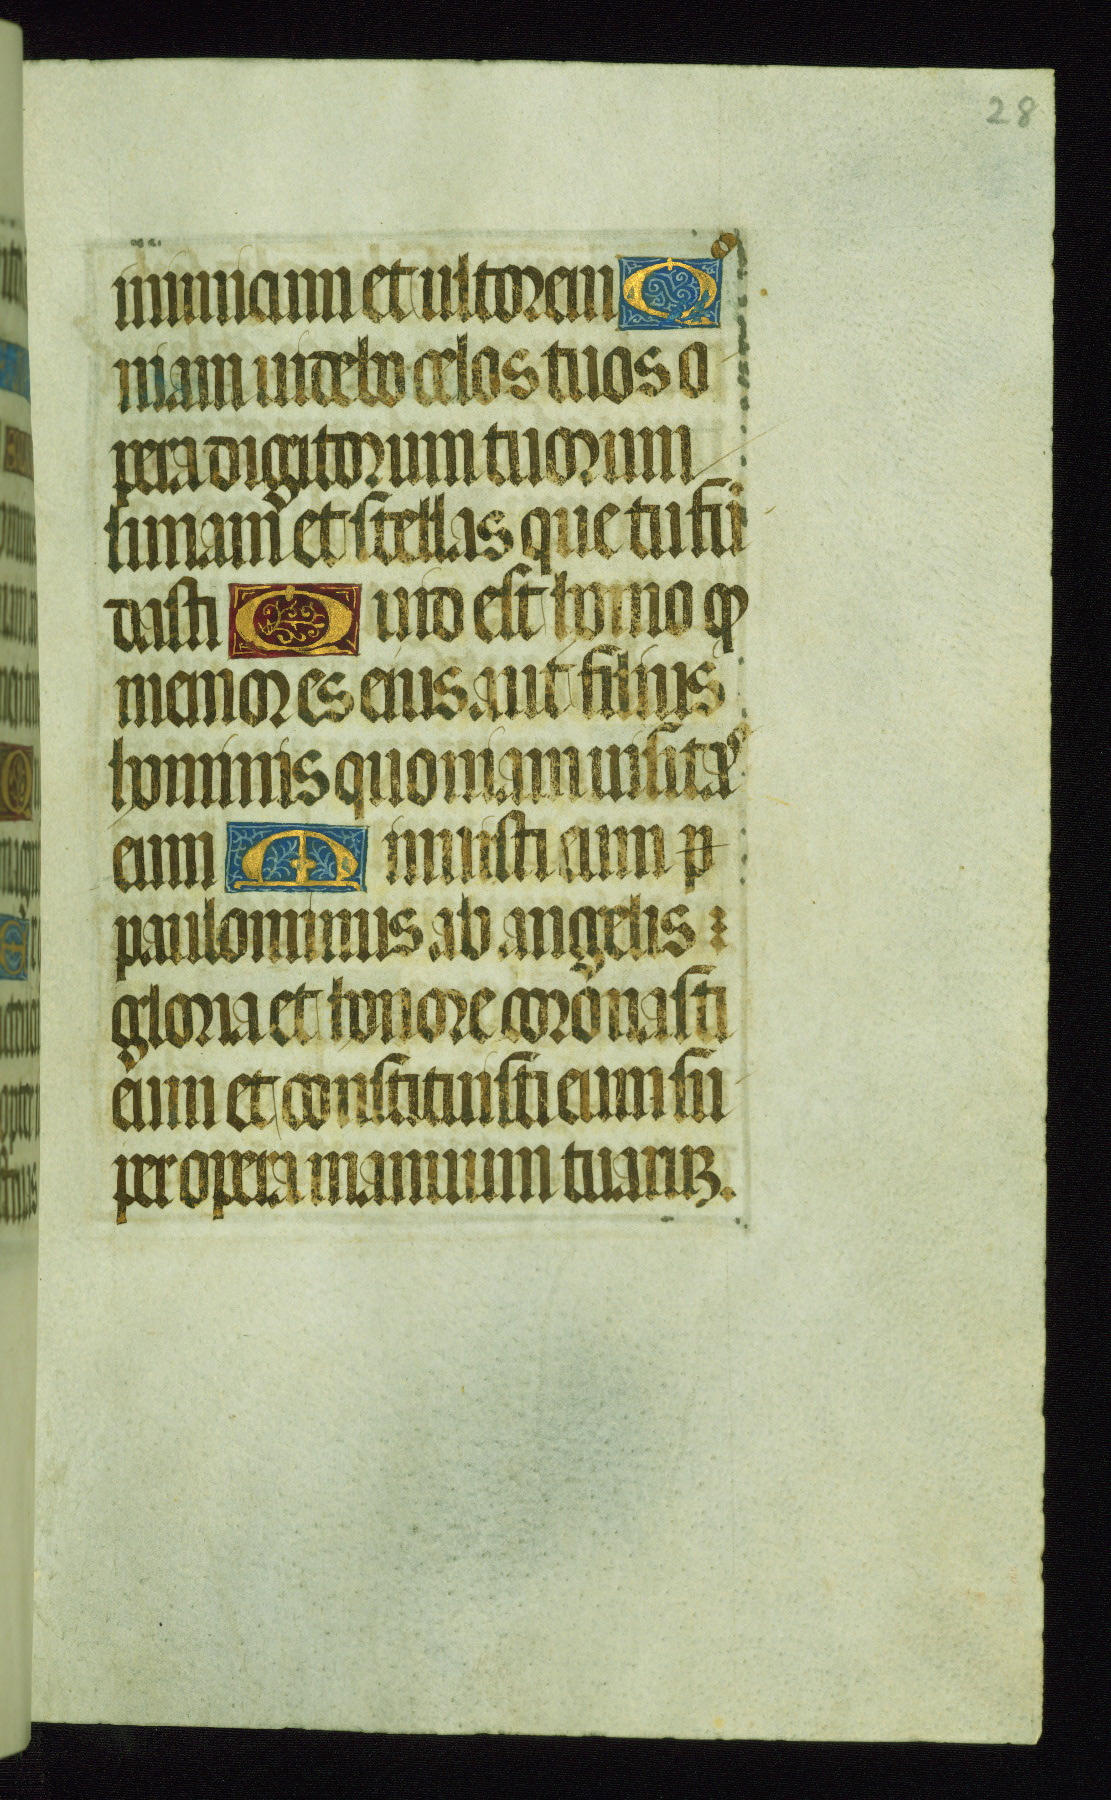 28
inimicum et ultorem Qͦ
niam uidebo celos tuos o
pera digitorum tuorum
lunam et stellas que tu fū
dasti Quid est homo ꝙ
memor es eius aut filius
hominis quoniam uisitas
eum Minuisti eum p̱
paulominus ab angelis
gloria et honore coronasti
eum et constituisti eum su
per opera manuum tuaruꝫ.